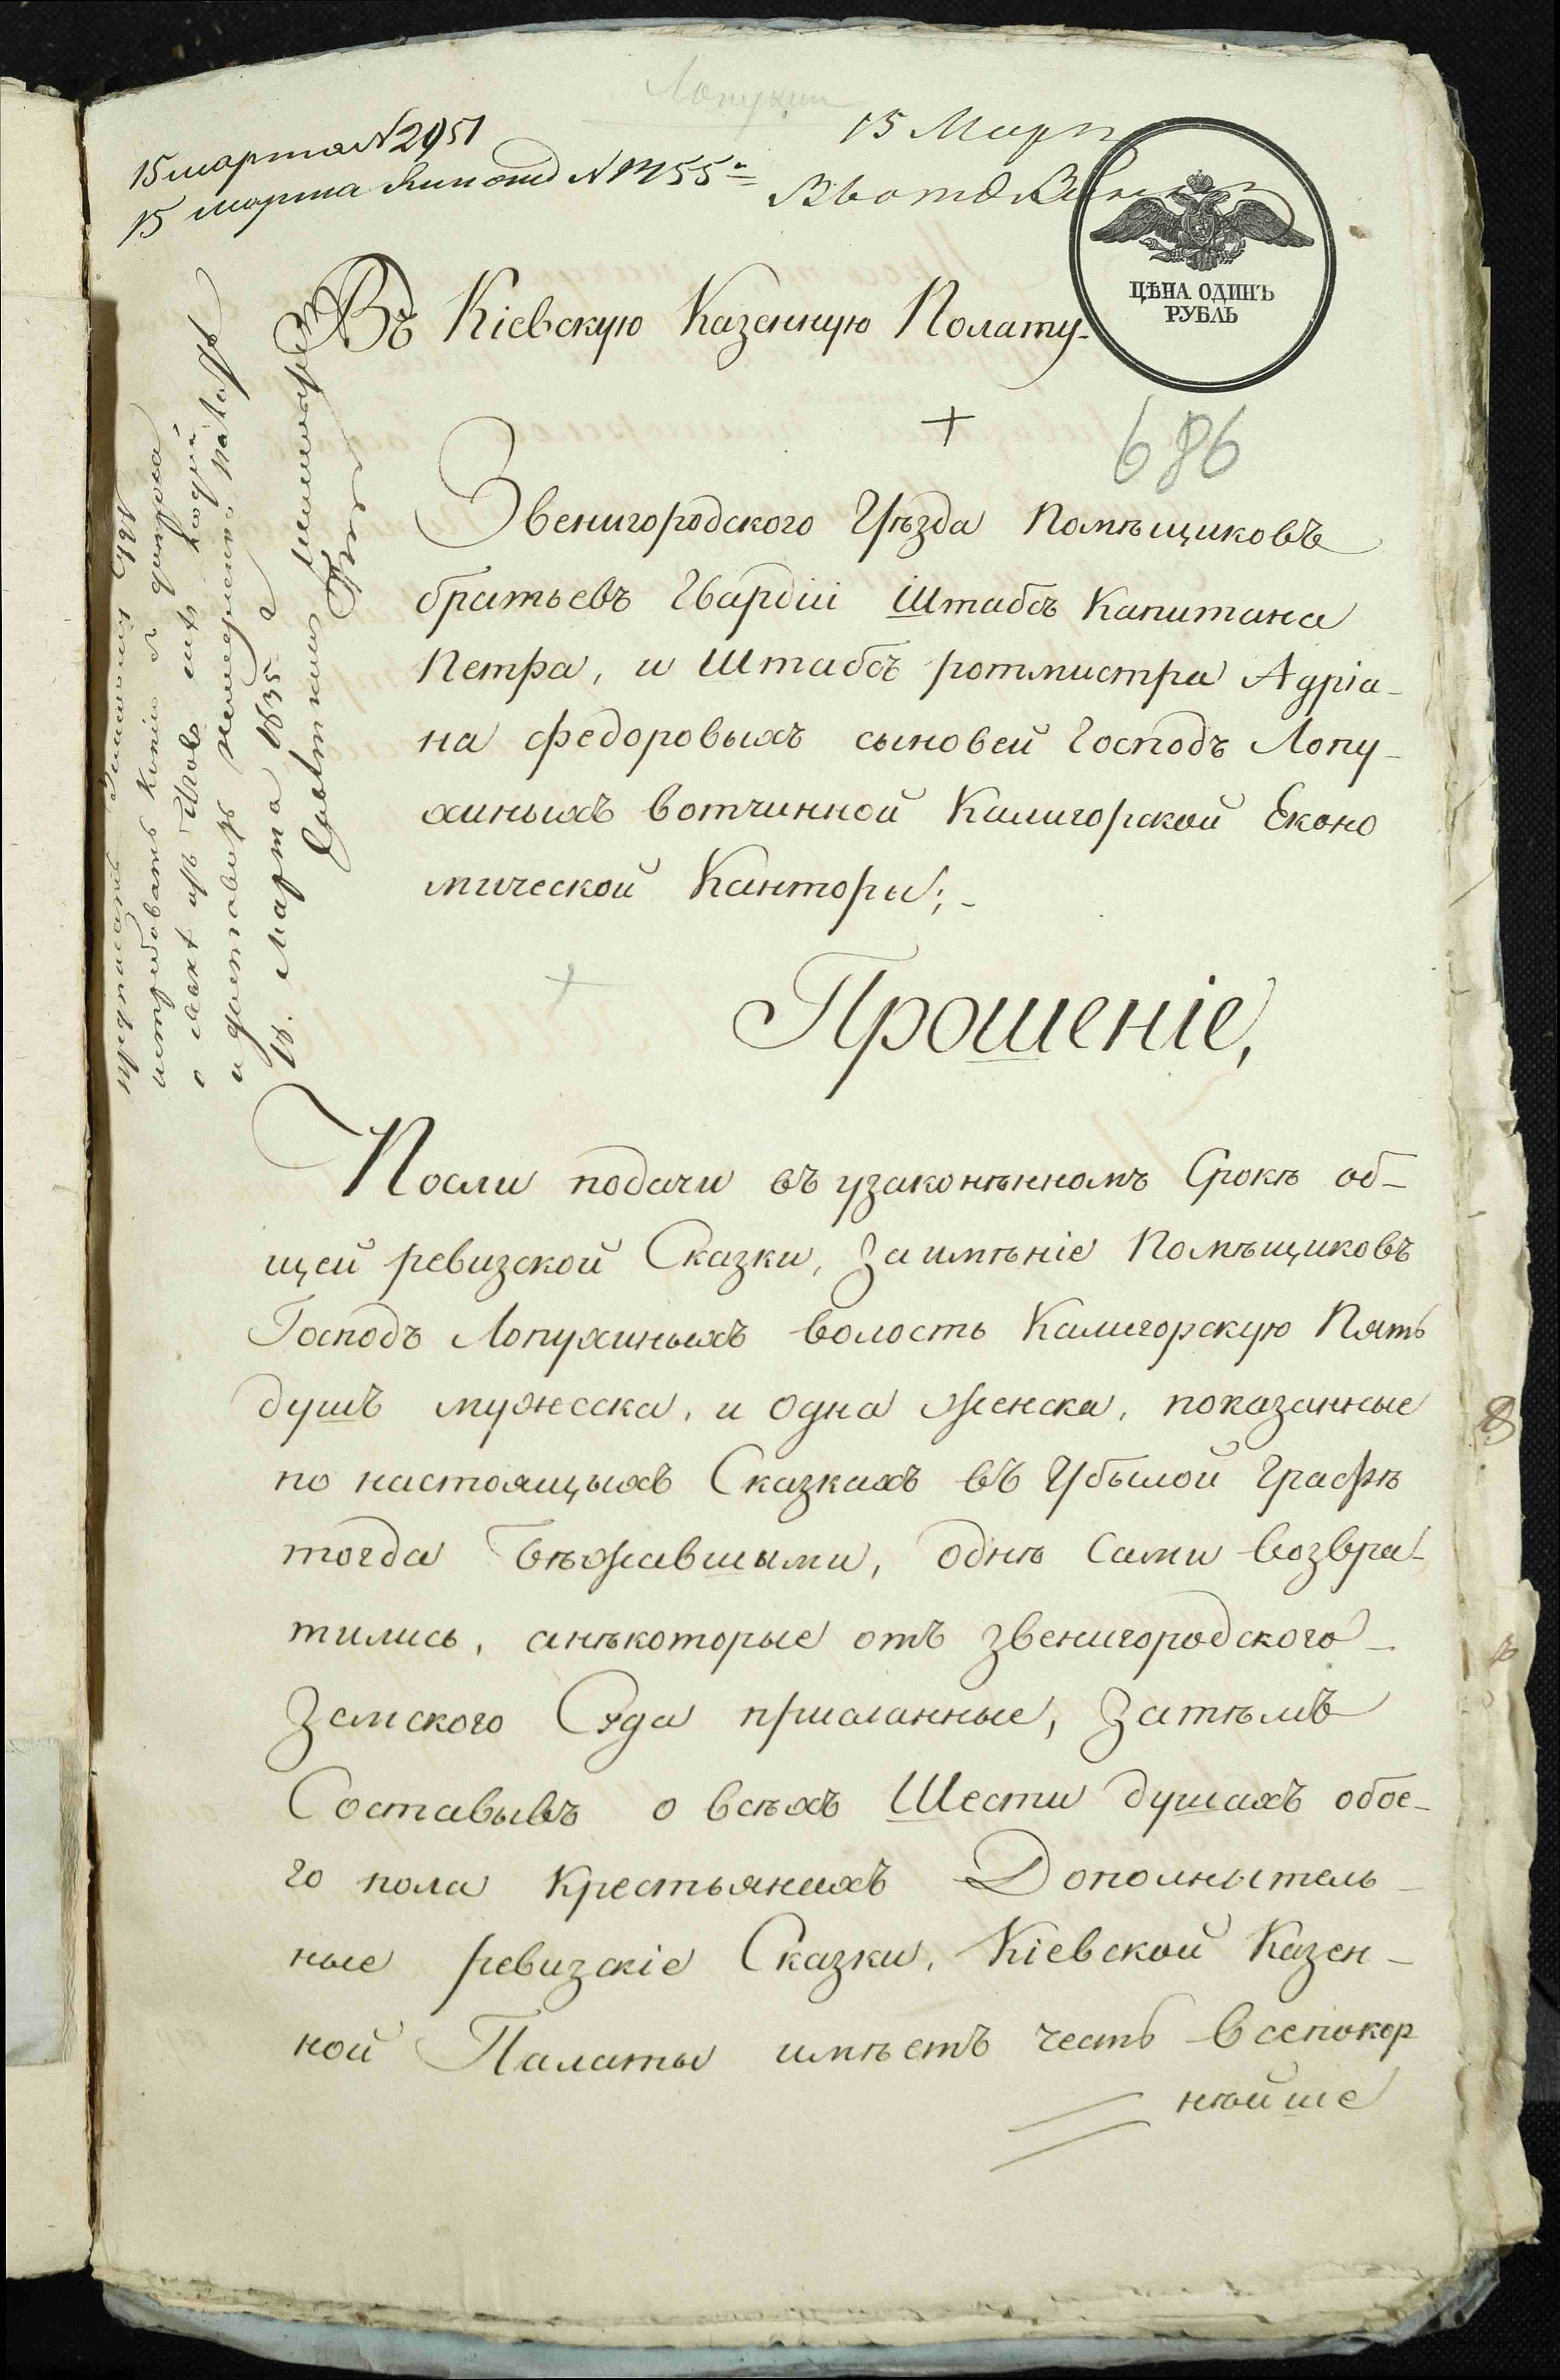 Лопухин
15 марта N 2951
15 марта N 1455
15 Март
ЦѢНА ОДИНЪ
РУБЛЬ
Въ Кіевскую Казенную Полату.
686
Звенигородского Уѣзда Помѣщиковъ
братьевъ Гвардіи Штабсъ Капитана
Петра, и Штабсъ ротмистра Адріа-
на Федоровыхъ сыновей Господъ Лопу-
хиныхъ вотчинной Калигорской Еконо
мической Канторы;-
Прошеніе,
Посли подачи въ узаконѣнномъ Срокѣ об-
щей ревизской Сказки, за имѣніе Помѣщиковъ
Господъ Лопухиныхъ волость Калигорскую Пять
душъ мужеска, и одна женска, показанные
по настоящыхъ Сказкахъ въ Убылой Графѣ
тогда бѣжавшыми, однѣ сами возвра-
тились, анѣкоторые отъ Звенигородского-
Земского Суда присланные, затѣмъ
Составывъ о всѣхъ Шести душахъ обое-
го пола Крестьянихъ Дополнытель-
ные ревизскіе Сказки, Кіевской Казен-
ной Палаты имѣетъ честь всепокор
нѣйше
истребовать копію
и доставить
18. Марта 1835